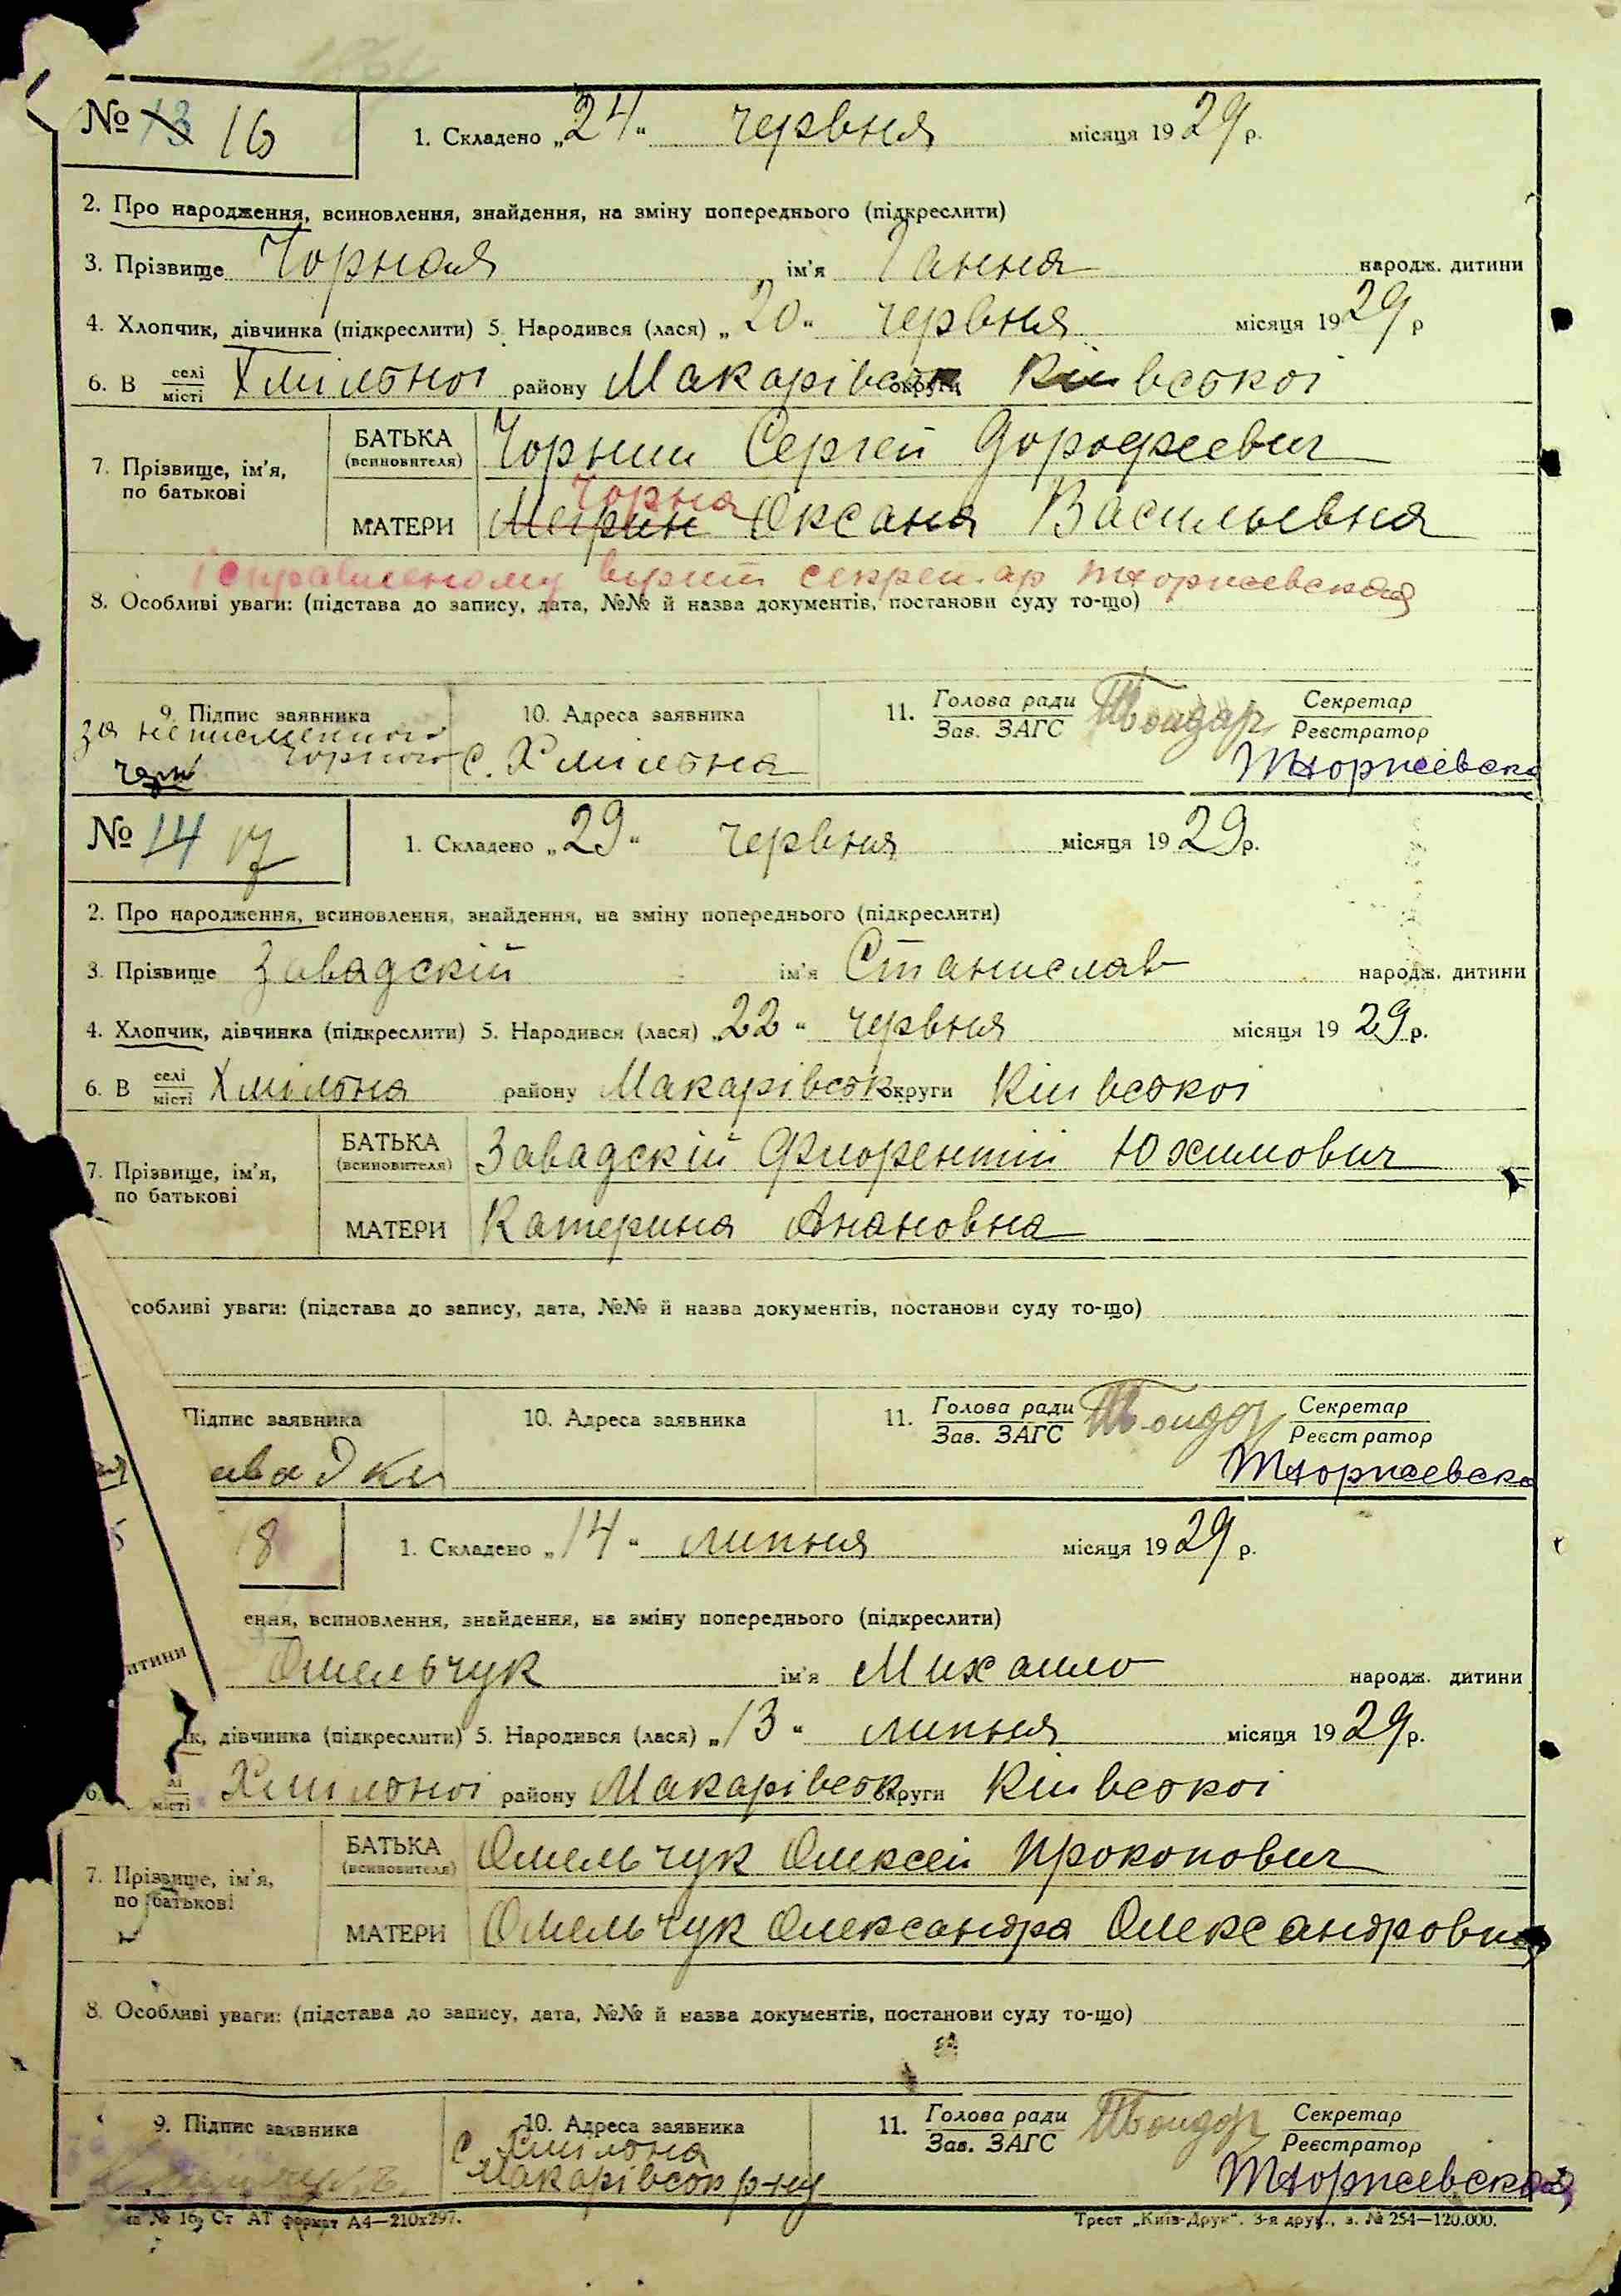 № 13 16
1. Складено „24“ червня місяця 1929 р.
2. Про народження, всиновлення, знайдення, на зміну попереднього (підкреслити)
3. Прізвище Чорная ім'я Ганна народж. дитини
4. Хлопчик, дівчинка (підкреслити) 5. Народився (лася) „20“ червня місяця 1929 р
6. В селі місті Хмільної району Макарівськ округи Київської
7. Прізвище, ім'я, по батькові
БАТЬКА (всиновителя) Чорний Сергей Дорофеевич
Чорна
МАТЕРИ Оксана Васильевна
Ісправленому вірить секретар
8. Особливі уваги: (підстава до запису, дата, №№ й назва документів, постанови суду то-що)
9. Підпис заявника
за неписменного Чорного
10. Адреса заявника
с. Хмільна
11. Голова ради Зав. ЗАГС
Секретар Реєстратор
№ 14 17
1. Складено „29“ червня місяця 1929 р.
2. Про народження, всиновлення, знайдення, на зміну попереднього (підкреслити)
3. Прізвище Завадскій ім'я Станислав народж. дитини
4. Хлопчик, дівчинка (підкреслити) 5. Народився (лася) „22“ червня місяця 1929 р.
6. В селі місті Хмільна району Макарівськ округи Київської
7. Прізвище, ім'я, по батькові
БАТЬКА (всиновителя) Завадскій Флорентій Юхимович
МАТЕРИ Катерина Анановна
собливі уваги: (підстава до запису, дата, №№ й назва документів, постанови суду то-що)
Підпис заявника
10. Адреса заявника
11. Голова ради Зав. ЗАГС
Секретар Реєстратор
8
1. Складено „14“ липня місяця 1929 р.
ення, всиновлення, знайдення, на зміну попереднього (підкреслити)
Омельчук ім'я Михайло народж. дитини
итини
ік, дівчинка (підкреслити) 5. Народився (лася) „13“ липня місяця 1929 р.
6. лі місті Хмільної району Макарівськ округи Київської
7. Прізвище, ім'я, по батькові
БАТЬКА (всиновителя) Омельчук Олексей Прокопович
МАТЕРИ Омельчук Олександра Олександровна
8. Особливі уваги: (підстава до запису, дата, №№ й назва документів, постанови суду то-що)
9. Підпис заявника
10. Адреса заявника
с Хмільна
Макарівськ р-ну
11. Голова ради Зав. ЗАГС
Секретар Реєстратор
№ 16, Ст АТ формат А4—210х297.
Трест „Київ-Друк“. 3-я друк., з. № 254—120.000.